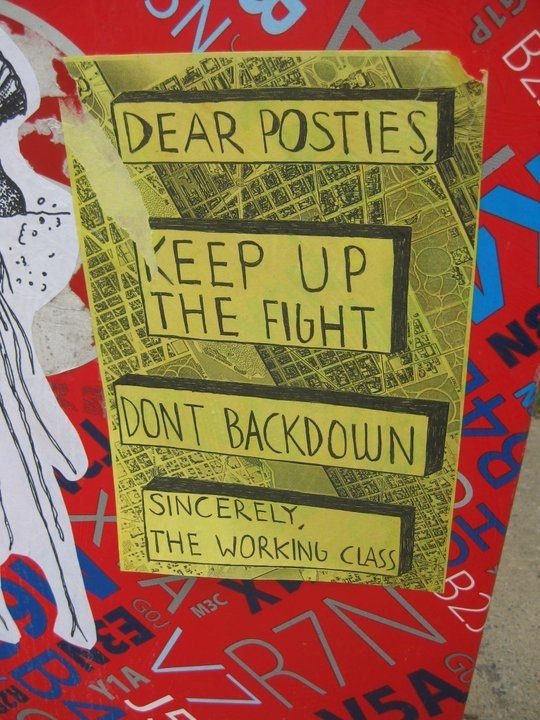 G1P
DEAR POSTIES,
KEEP UP
THE FIGHT
DONT BACKDOWN
SINCERELY,
THE WORKING CLASS
M3C
G0J
E3N
R7N
Y1A
V5A